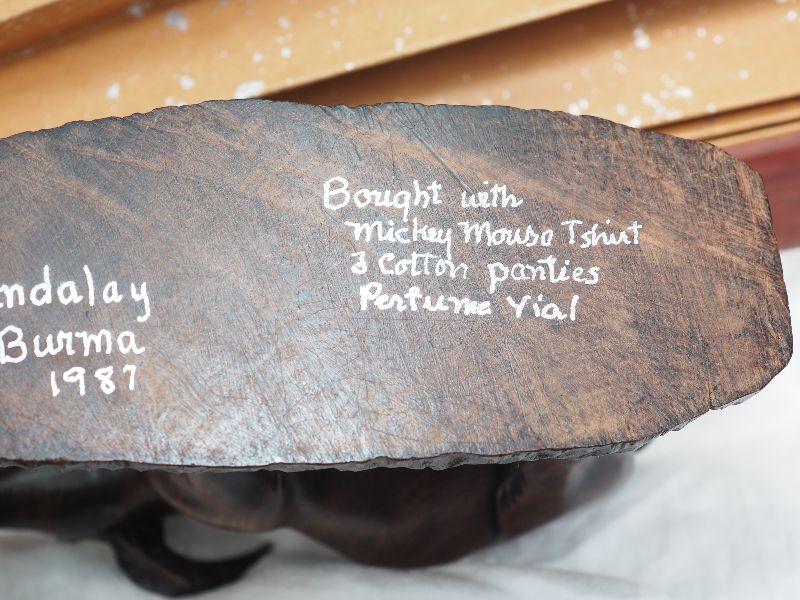 ndalay
Burma
1987
Bought with
Mickey Mouse Tshirt
3 Cotton panties
Perfume Vial